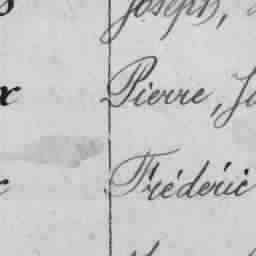 Joseph,
x Pierre, J
c Fréderic